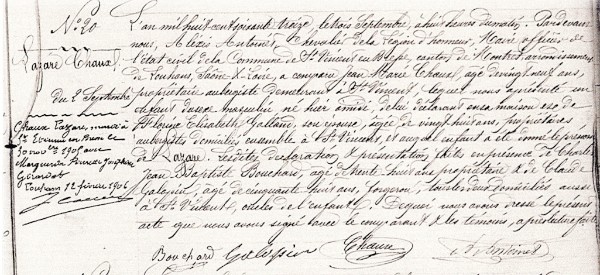 No. 20
Lazare Chaux
du 2 Septembre
Chaux Lazare, marié à
St Etienne en Bresse le
30 novbre 1905 avec
Marguerite
Louhans 12 février 1906
L'an mil huit cent soixante treize, le trois Septembre, à huit heures du matin. Pardevant
nous, Alexis Antoinet, Chevalier de la Légion d'honneur, Maire officier de
l'état civil de la Commune de St Vincent en Bresse, canton de Montret, arrondissement
de Louhans, Saône & Loire, a comparu Jean Marie Chaux, âgé de vingt neuf ans,
propriétaire aubergiste demeurant à St Vincent, lequel nous a présenté un
enfant du sexe masculin né hier à midi, de lui déclarant en sa maison et de
Louise Elisabeth Galland, son épouse, âgée de vingt huit ans, propriétaires
aubergistes domiciliés ensemble à St Vincent, et auquel enfant il a été donné le prénom
de Lazare. Lesdites déclaration & présentation faites en présence de Charles
Jean Baptiste Bouchard, âgé de trente huit ans propriétaire & de Claude
âgé de cinquante huit ans, forgeron, tous les deux domiciliés aussi
à St Vincent, de l'enfant. Duquel nous avons dressé le présent
acte que nous avons signé avec le comparant & les témoins, après lecture faite
Bouchard Chaux A. Antoinet